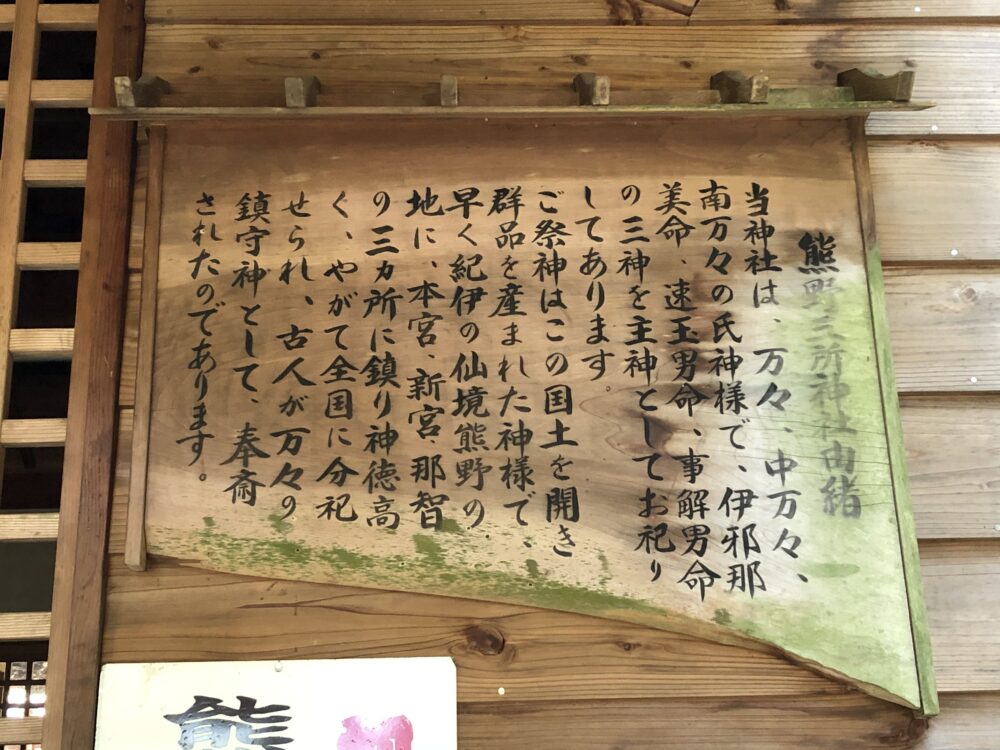 熊野三所神社由緒
当神社は、万々、中万々、
南万々の氏神様で、伊邪那
美命、速玉男命、事解男命
の三神を主神としてお祀り
してあります。
ご祭神はこの国土を開き
群品を産まれた神様で、
早く紀伊の仙境熊野の
地に、本宮、新宮、那智
の三ヵ所に鎮り神徳高
く、やがて全国に分祀
せられ、古人が万々の
鎮守神として、奉斎
されたのであります。
熊